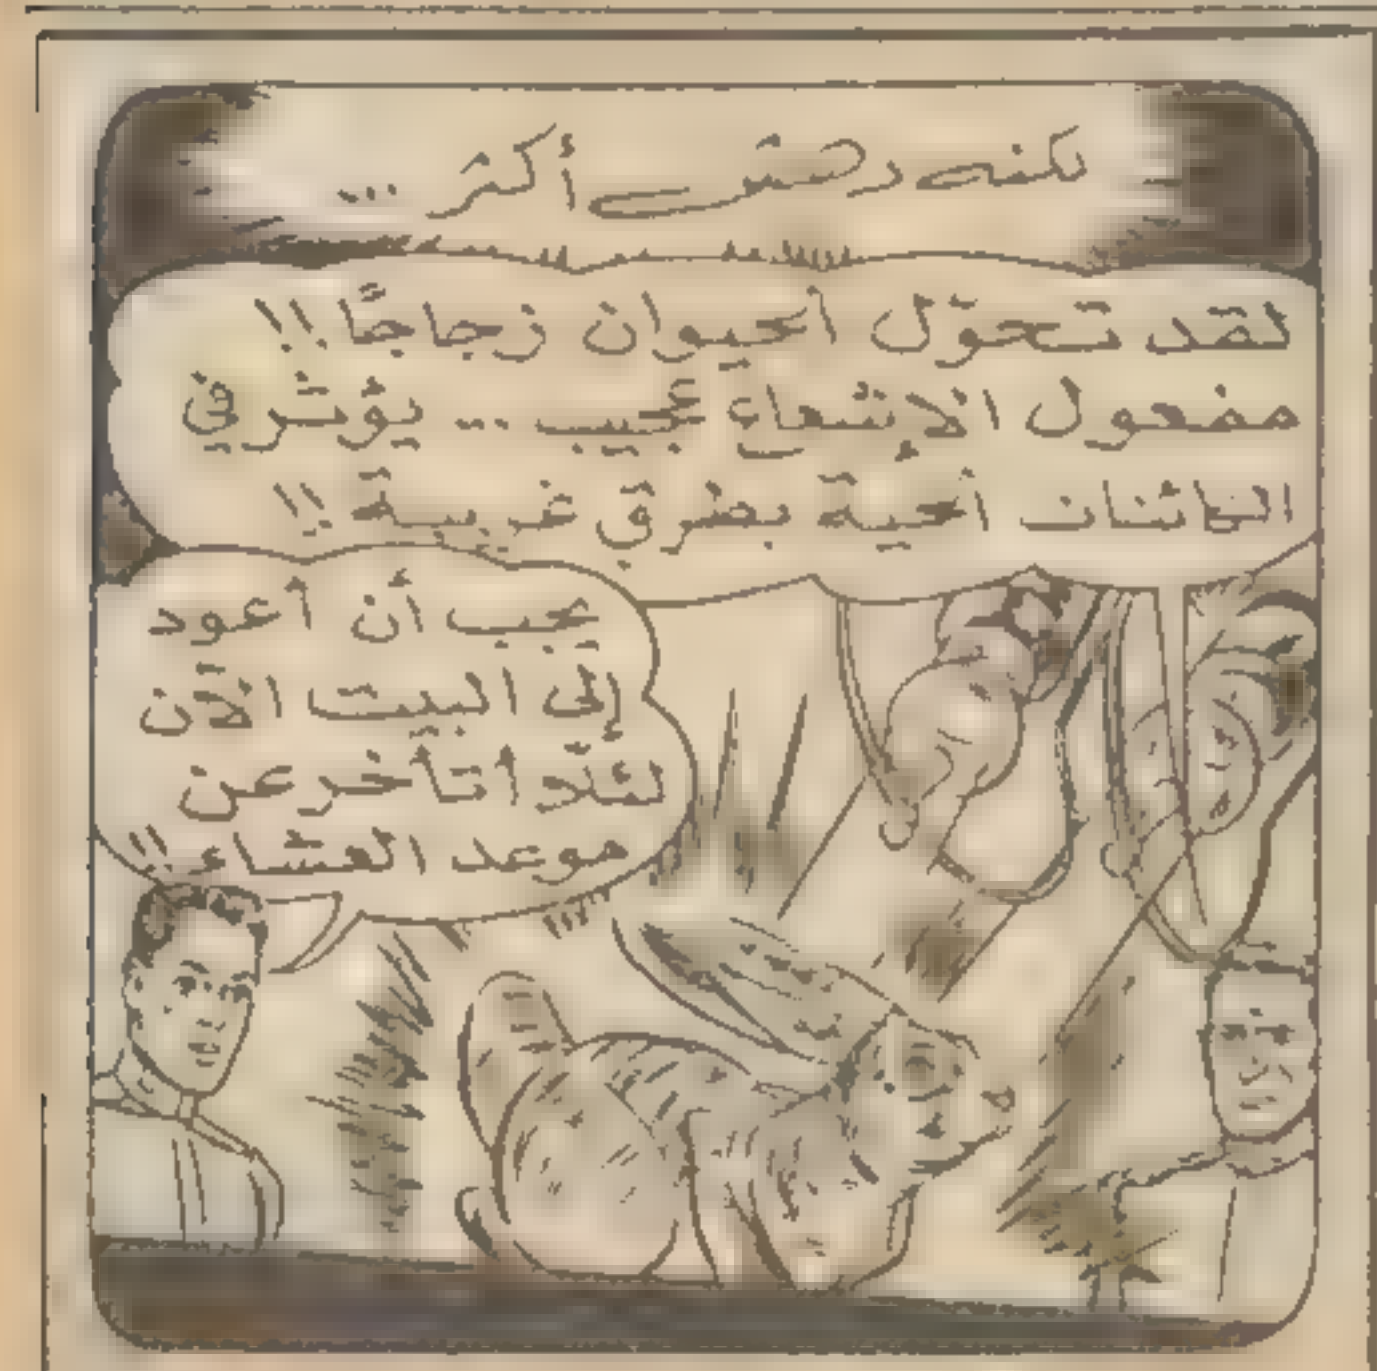 لكنه دهش أكثر ...
لقد تحوّل الحيوان زجاجًا!!
مفعول الإشعاع عجيب ... يؤثر في
الكائنات الحية بطرق غريبة!!
يجب أن أعود
إلى البيت الآن
لئلّا أتأخر عن
موعد العشاء!!